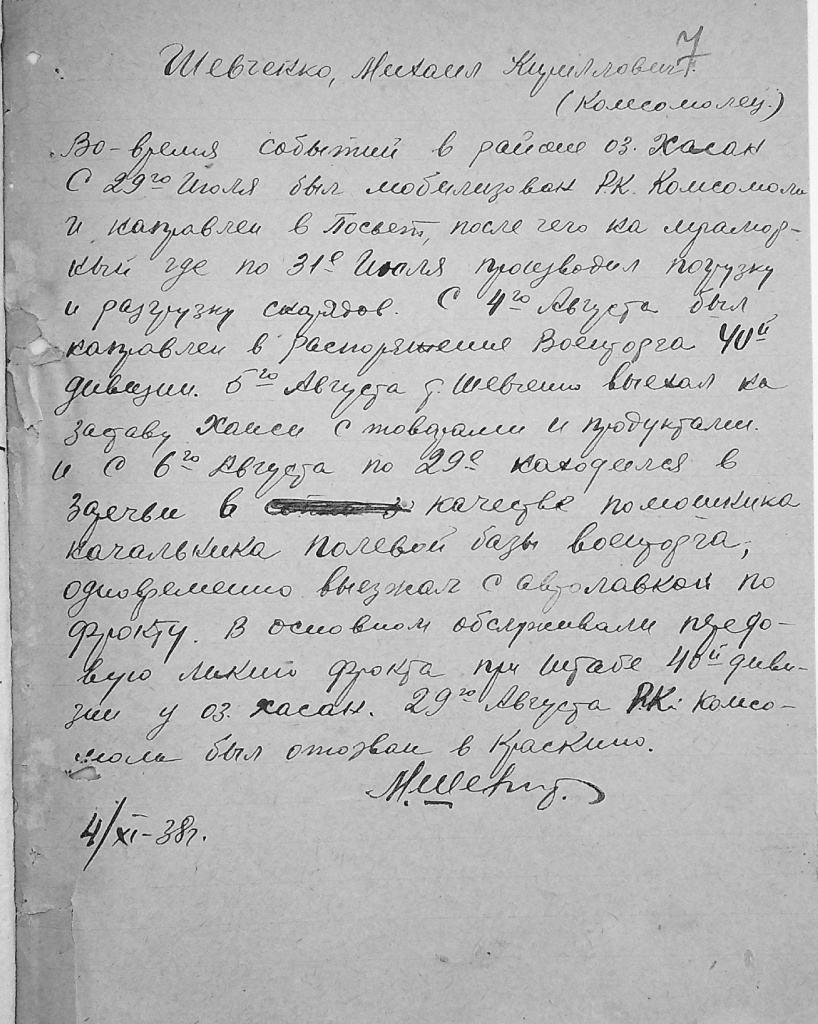 7
Шевченко, Михаил Кириллович.
(Комсомолец.)
Во-время событий в районе оз. Хасан
С 29го Июля был мобилизован Р.К. Комсомола
и направлен в Посьет, после чего на мрамор-
ный где по 31е Июля производил погрузку
и разгрузку снарядов. С 4го Августа был
направлен в распоряжение Военторга 40й
дивизии. 5го Августа т. Шевченко выехал на
заставу Ханси с товарами и продуктами.
и С 6го Августа по 29е находился в
Заречьи в качестве помошника
начальника полевой базы военторга,
одновременно выезжал с автолавкой по
фронту. В основном обслуживали передо-
вую линию фронта при штабе 40й диви-
зии у оз. Хасан. 29го Августа Р.К. Комсо-
мола был отозван в Краскино.
4/XI-38г.